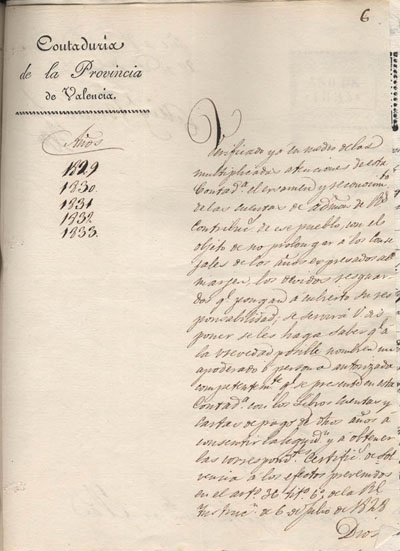 6
Contaduría
de la Provincia
de Valencia.
Años
1829
1830.
1831
1832
1833.
Verificado ya en medio de las
multiplicadas atenciones de esta
Contad.ª el ecsamen y reconocim.to
de las cuentas de admon de R.s
Contribuc.s de ese pueblo con el
objeto de no prolongar a los Conce-
jales de los años expresados al
margen, los devidos resguar-
dos q.e pongan a cubierto su res-
ponsabilidad; se servirá V. dis-
poner se les haga saber q.e a
la brevedad posible nombren un
apoderado ó persona autorizada
competentem.te q.e se presente en esta
Contad.ª con los Libros cuentas y
cartas de pago de dhos años a
consentir la liquid.n y a obtener
las correspond.tes Certific.s de Sol-
vencia a los efectos prevenidos
en el art.o 36 tit.o 6.o de la R.l
Instruc.n de 6 de Julio de 1828
Dios